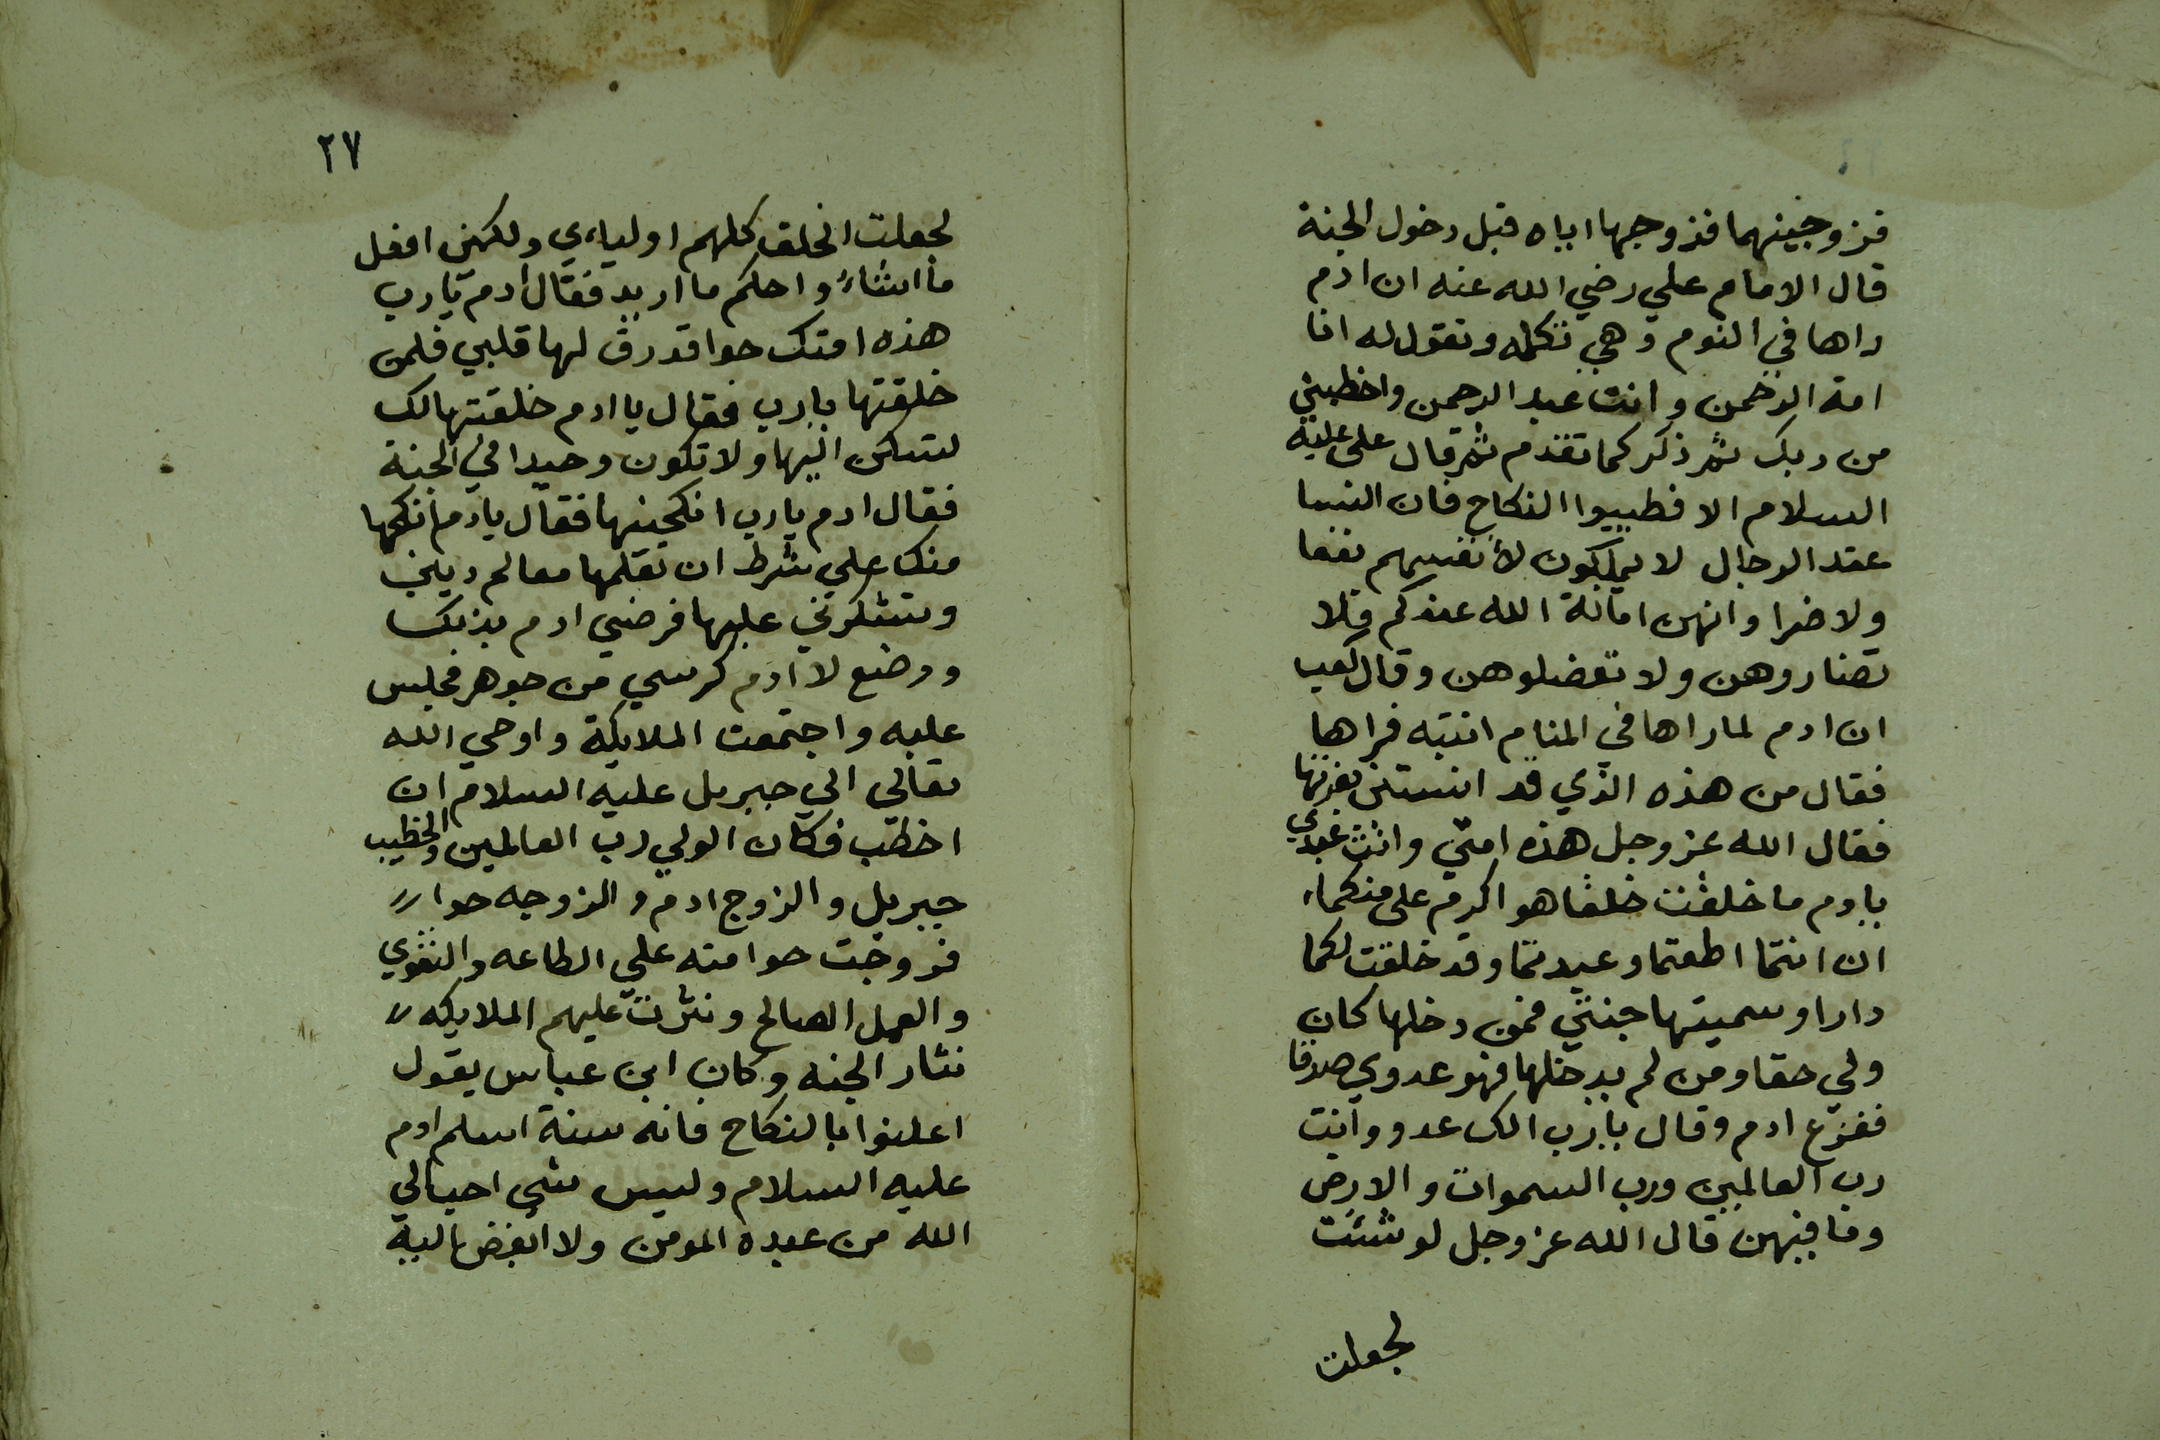 فزوجنيها فزوجها اياه قبل دخول الجنة
قال الامام علي رضي الله عنه ان ادم
راها في النوم وهي تكلمه وتقول له انا
امة الرحمن وانت عبد الرحمن واخطبني
من ربك ثم ذكر كما تقدم ثم قال على عليه
السلام الا فطيبوا النكاح فان النسا
عقد الرجال لا يملكون لأنفسهم نفعا
ولا ضرا وانهن امانة الله عندكم فلا
تضاروهن ولا تعضلوهن وقال كعب
ان ادم لما راها في المنام انتبه فراها
فقال من هذه الذي قد انستني بقربها
فقال الله عز وجل هذه امتي وانت عبدي
يادم ما خلقت خلقا هو اكرم على منكماء
ان انتما اطعتما وعبدتما وقد خلقت لكما
دارا وسميتها جنتي فمن دخلها كان
ولي حقا ومن لم يدخلها فهو عدوي صدقا
ففزع ادم وقال يارب الك عدو وانت
رب العالمين ورب السموات والارض
وما فيهن قال الله عز وجل لو شئت
لجعلت
٢٧
لجعلت الخلق كلهم اولياءي ولكني افعل
ما اشاء واحكم ما اريد فقال ادم يارب
هذه امتك حوا قد رق لها قلبي فلمن
خلقتها يارب فقال يا ادم خلقتها لك
لتسكن اليها ولا تكون وحيدا في الجنة
فقال ادم يارب انكحينها فقال يادم انكحها
منك علي شرط ان تعلمها معالم ديني
وتشكرني عليها فرضي ادم بذلك
ووضع لا ادم كرسي من جوهر فجلس
عليه واجتمعت الملايكة واوحي الله
تعالي الي جبريل عليه السلام ان
اخطب فكان الولي رب العالمين والخطيب
جبريل والزوج ادم والزوجه حوا
فزوجت حوا منه علي الطاعه والتقوي
والعمل الصالح ونثرت عليهم الملايكه
نثار الجنه وكان ابن عباس يقول
اعلنوا بالنكاح فانه سنة اسلم ادم
عليه السلام وليس شي احب الي
الله من عبده المومن ولا ابغض اليه